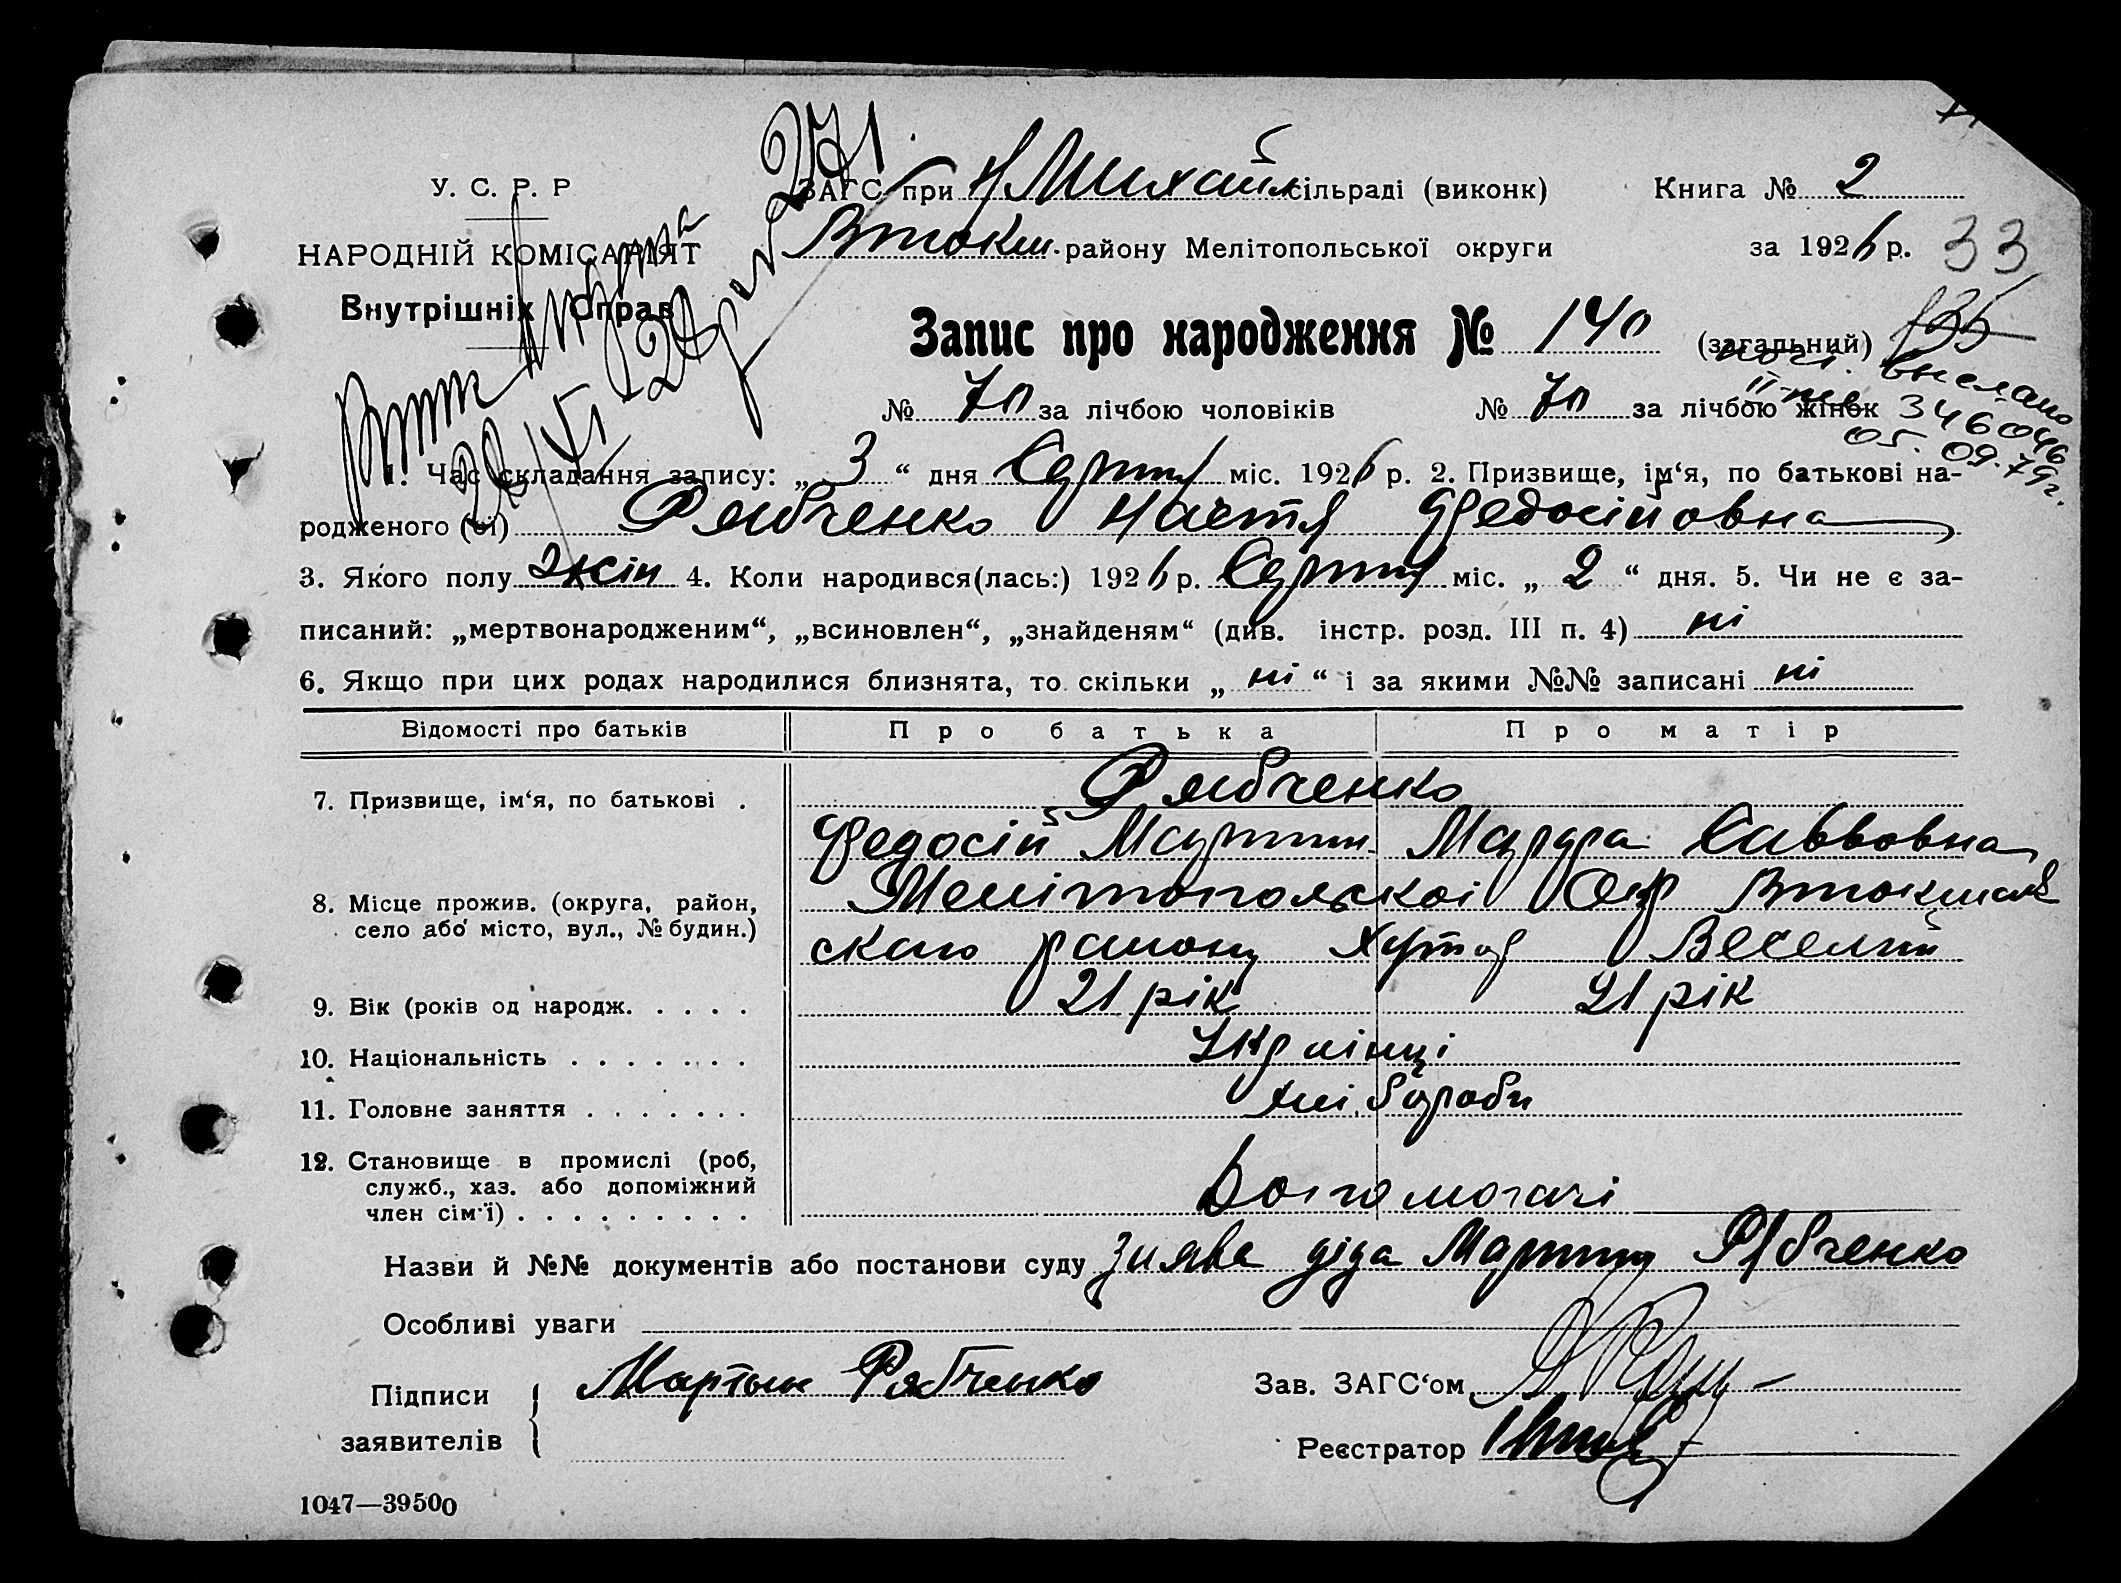 271.
У. С. Р. Р
ЗАГС при Н Михайл сільраді (виконк) Книга № 2
НАРОДНІЙ КОМІСАРІЯТ
Втокм. району Мелітопольської округи за 1926 р. 33
Внутрішніх Справ
Запис про народження № 140 (загальний) 135
пост. выслано
№ 70 за лічбою чоловіків № 70 за лічбою жінок 346046
05.09.79г.
1. Час складання запису: „ 3 “ дня Серпня міс. 1926 р. 2. Призвище, ім‘я, по батькові на-
родженого (ої) Рябченко Настя Федосійовна
3. Якого полу жін 4. Коли народився(лась:) 1926 р. Серпня міс. „ 2 “ дня. 5. Чи не є за-
писаний: „мертвонародженим“, „всиновлен“, „знайденям“ (див. інстр. розд. III п. 4) ні
6. Якщо при цих родах народилися близнята, то скільки „ ні “ і за якими №№ записані ні
Відомості про батьків Про батька Про матір
7. Призвище, ім‘я, по батькові . Рябченко
Федосій Мартин. Марфа Саввовна
8. Місце прожив. (округа, район, село або місто, вул., № будин.) Мелітопольскоі Окр Втокмаль
ского району Хутор Веселий
9. Вік (років од народж. . . . . 21 рік 21 рік
10. Національність . . . . . . . Українці
11. Головне заняття . . . . . . . хліборобн
12. Становище в промислі (роб,
служб., хаз. або допоміжний
член сім‘ї) . . . . . . . . . Допомогачі
Назви й №№ документів або постанови суду Заява діда Мартина Рябченко
Особливі уваги
Підписи заявителів Мартын Рябченко Зав. ЗАГС‘ом
Реєстратор
1047—39500